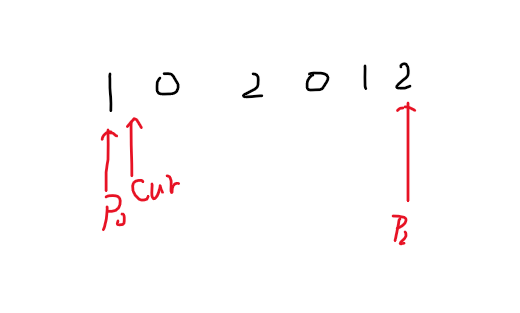 1 0 2 0 1 2
P₀ Cur P₂